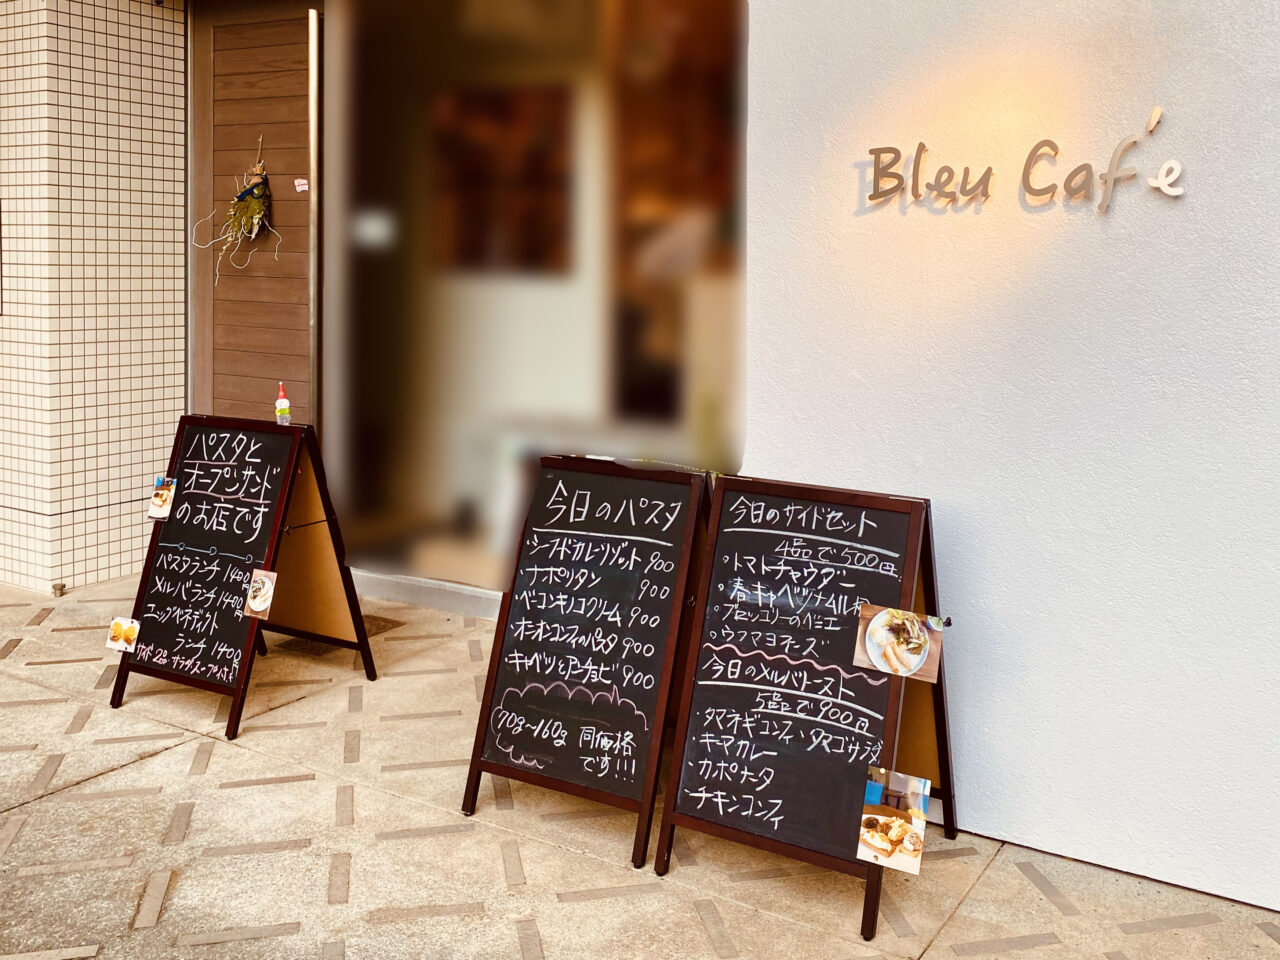 Bleu Café
パスタと
オープンサンド
のお店です
パスタランチ 1400円
メルバランチ 1400円
エッグベネディクト
ランチ 1400円
サイド2品 サラダ スープ付き
今日のパスタ
・シーフードカレーリゾット 900
・ナポリタン 900
・ベーコンキノコクリーム 900
・オニオンコンフィのパスタ 900
・キャベツとアンチョビ 900
70g〜160g 同価格
です!!!
今日のサイドセット
4品で500円
・トマトチャウダー
・春キャベツナムル
・ブロッコリーの
・ウフマヨネーズ
今日のメルバトースト
5品で900円
・タマネギコンフィ、タマゴサラダ
・キーマカレー
・カポナータ
・チキンコンフィ